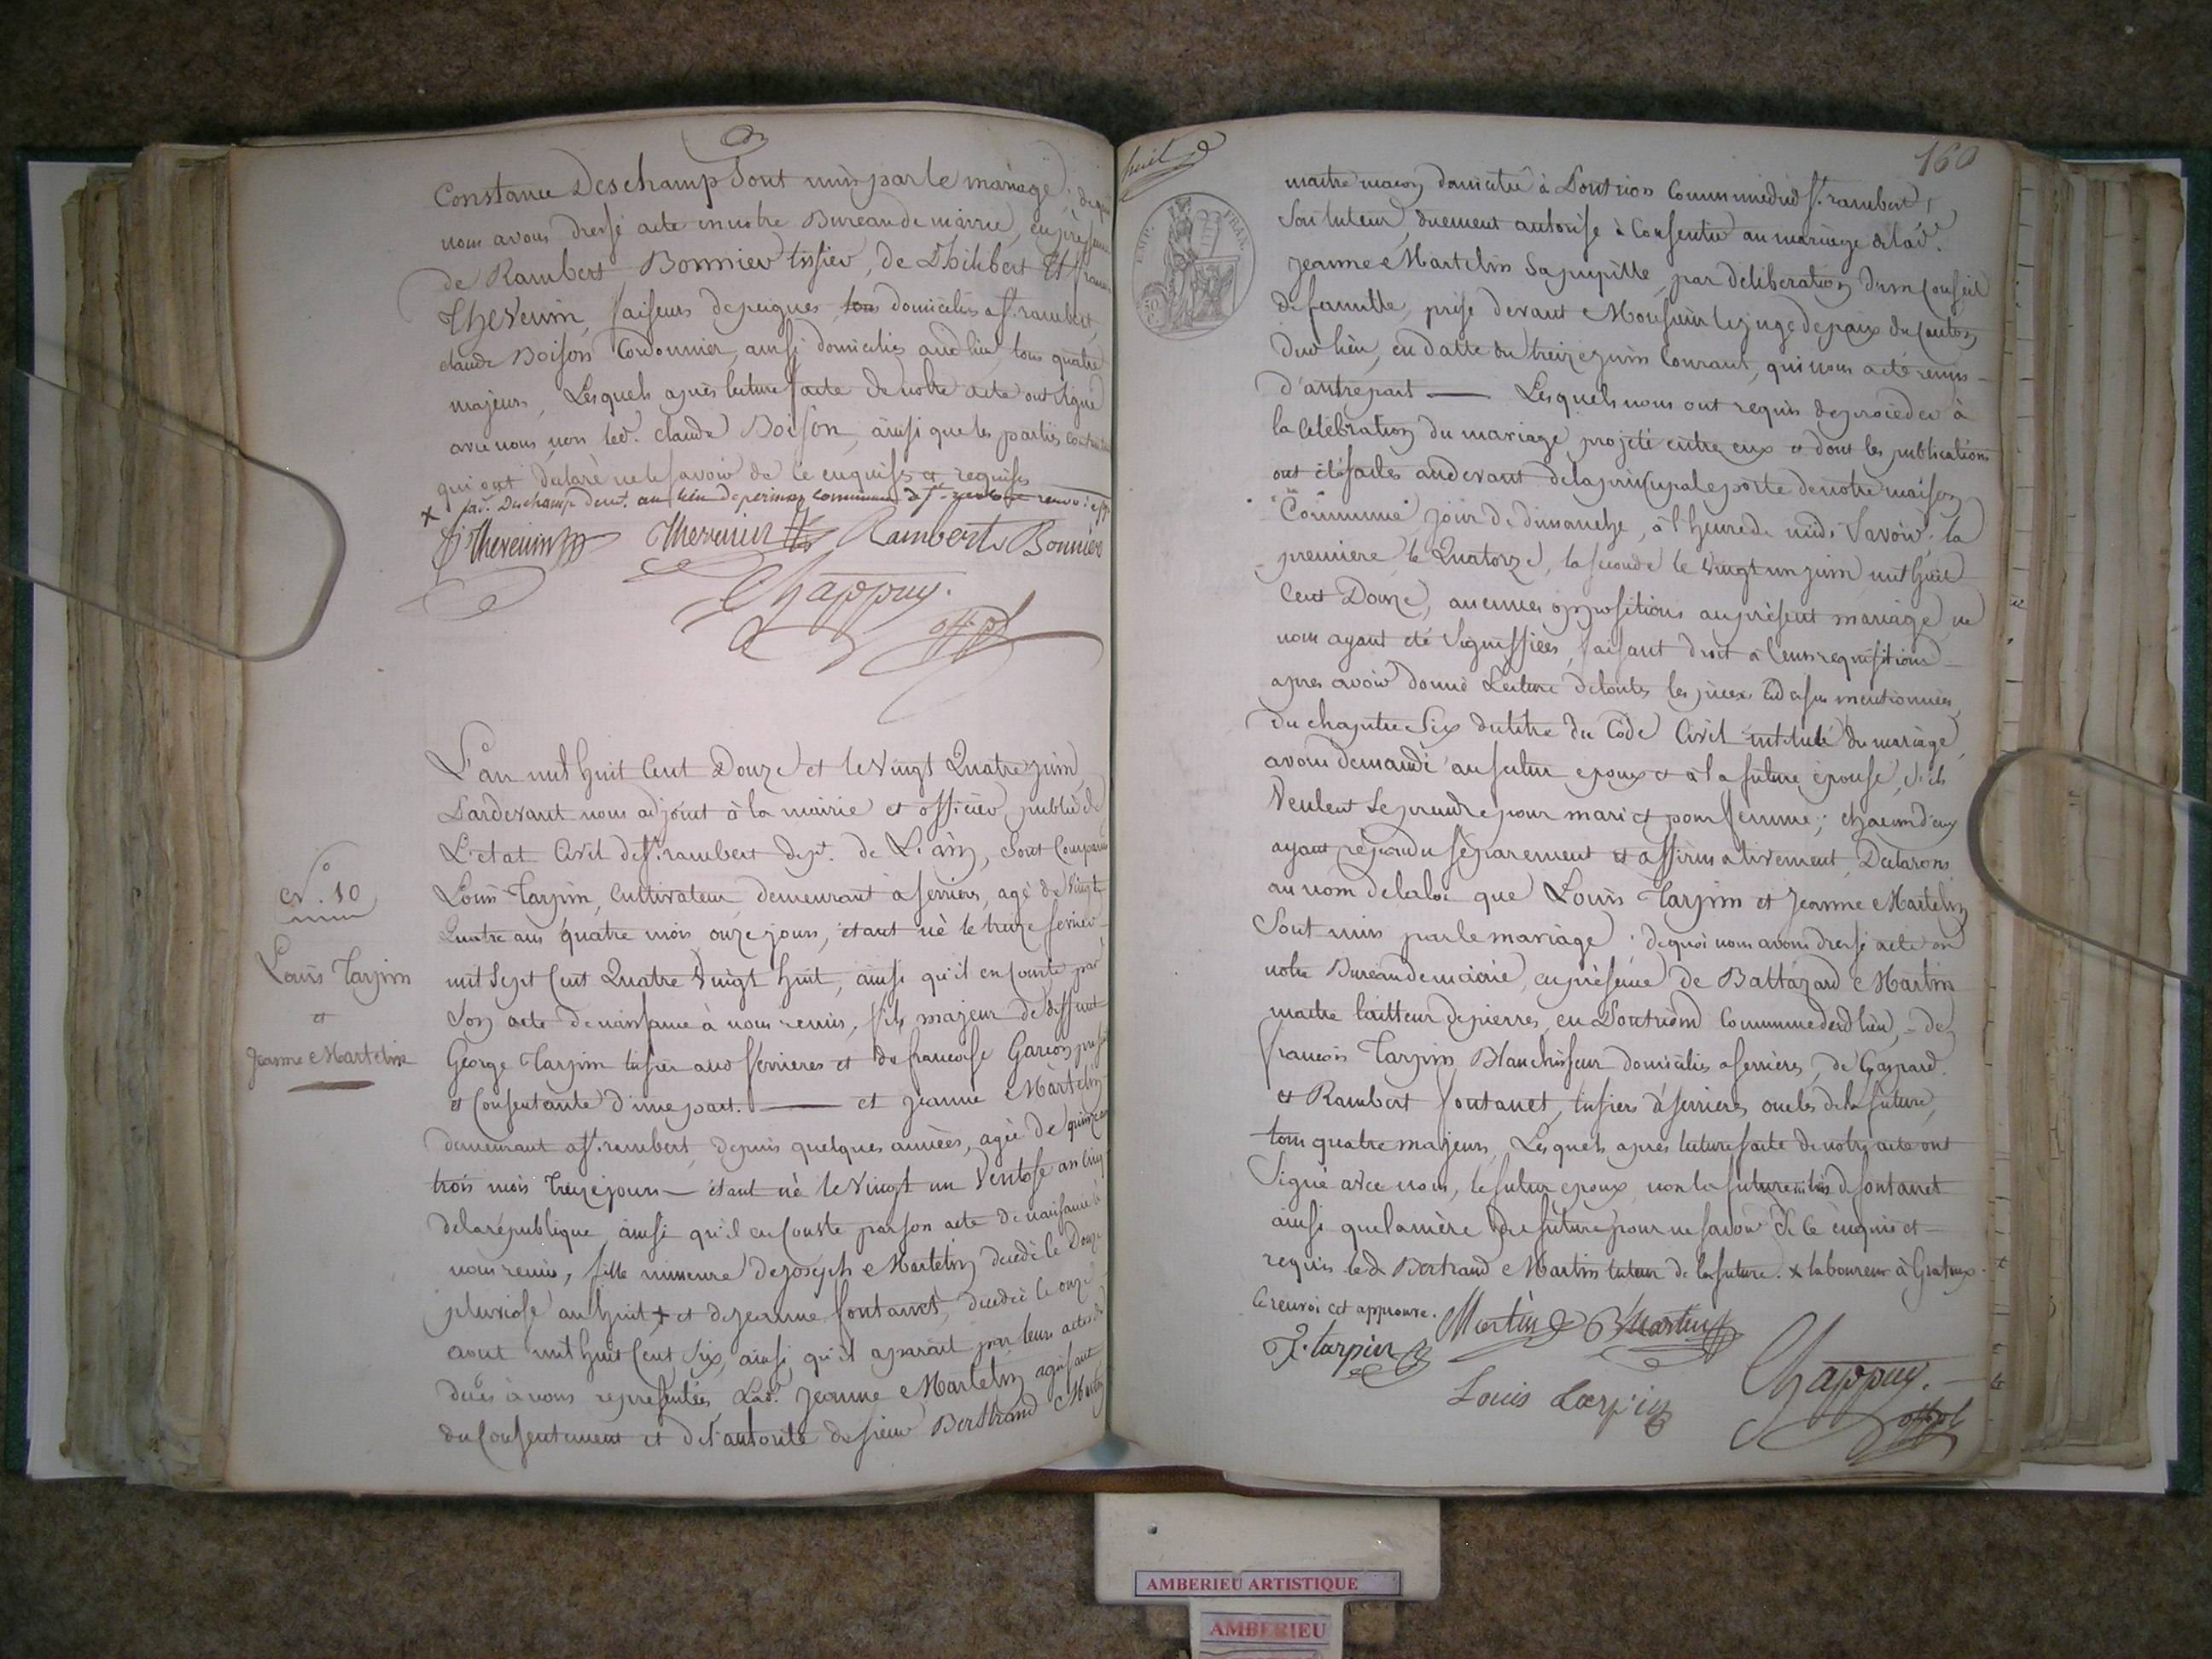 Constance Deschamp Sont unis par le mariage; de quoi
nous avons dressé acte en notre Bureau de mairie, en présence
de Rambert Bonnier tissier, de Philibert Et francois
Thevenin, faiseurs de peignes, tous domiciliés a St. rambert,
claude Boison Cordonnier, aussi domicilié aud. lieu, tous quatre
majeurs, Lesquels après lecture faite de notre acte ont signé
avec nous, non led. claude Boison, ainsi que les parties contractantes
qui ont déclaré ne le savoir de ce enquises et requises
x lad. Deschamp demt. au lieu de commune de St. rambert renvoi app
Thevenin Thevenin Rambert Bonnier
Chappuy.
off. pl
L'an mil huit Cent Douze et le vingt Quatre juin,
Pardevant nous adjoint à la mairie et officier public de
L'etat Civil de St. rambert dept. de L'ain, Sont Comparus
Louis Tarpin, Cultivateur, demeurant à serrieres, agé de vingt
Quatre ans quatre mois onze jours, étant né le treize fevrier
mil sept Cent Quatre vingt huit, ainsi qu'il en Conste par
Son acte de naissance à nous remis, fils majeur de deffunt
George Tarpin tissier aud. Serrieres et de francoise Garcon présente
et Consentante d'une part. — et jeanne Martelin
demeurant a St. rambert, depuis quelques années, agée de quinze ans
trois mois treize jours — étant née le vingt un Ventose an cinq
de la république, ainsi qu'il en Conste par son acte de naissance à
nous remis, fille mineure de joseph Martelin decedé le Douze
pluviose an huit x et de jeanne fontanet, decedée le onze
aout mil huit Cent Six, ainsi qu'il aparait par leurs actes de
décès à nous representés Lad. jeanne Martelin agissant
du Consentement et de l'autorité de sieur Bertrand Martin
N°. 10
Louis Tarpin
et
Jeanne Martelin
huit
160
EMP. FRAN.
maitre macon domicilié à Commune dud St. rambert,
Son tuteur, duement autorisé à Consentir au mariage de lad.
jeanne Martelin Sa pupille, par deliberation d'un Conseil
de famille, prise devant Monsieur le juge de paix du Canton
dud lieu, en datte du treize juin Courant, qui nous a été remis
d'autre part — Lesquels nous ont requis de proceder à
la Célébration du mariage projeté entre eux et dont les publications
ont été faites au devant de la principale porte de notre maison
Commune jour de dimanche, à l'heure de midi Savoir: la
premiere le Quatorze, la seconde le vingt un juin mil huit
Cent Douze, aucunes oppositions au présent mariage ne
nous ayant été Signiffiées, faisant droit à leurs requisitions
apres avoir donné Lecture de toutes les pièces cidessus mentionnées,
du chapitre Six du titre du Code Civil intitulé du mariage
avons demandé au futur epoux et à la future épouse, S'ils
Veulent Se prendre pour mari et pour femme; chacun d'eux
ayant répondu séparement et affirmativement, Déclarons
au nom de la loi que Louis Tarpin et Jeanne Martelin
Sont unis par le mariage: de quoi nous avons dressé acte en
notre Bureau de mairie, en présence de Baltazard Martin
maitre tailleur de pierres, en Commune dud lieu, de
francois Tarpin Blanchisseur domicilié a serrieres, de Gaspard
et Rambert fontanet, tissiers à serrieres oncles de la future,
tous quatre majeurs, Lesquels apres lecture faite de notre acte ont
Signé avec nous, le futur epoux, non la future de fontanet
ainsi que la mère du futur pour ne savoir de ce enquis et
requis led. Bertrand Martin tuteur de la future. x laboureur à
le renvoi cet approuvé. Martin B Martin
F. tarpin
Louis tarpin
Chappuy.
off. pl
AMBERIEU ARTISTIQUE
AMBERIEU